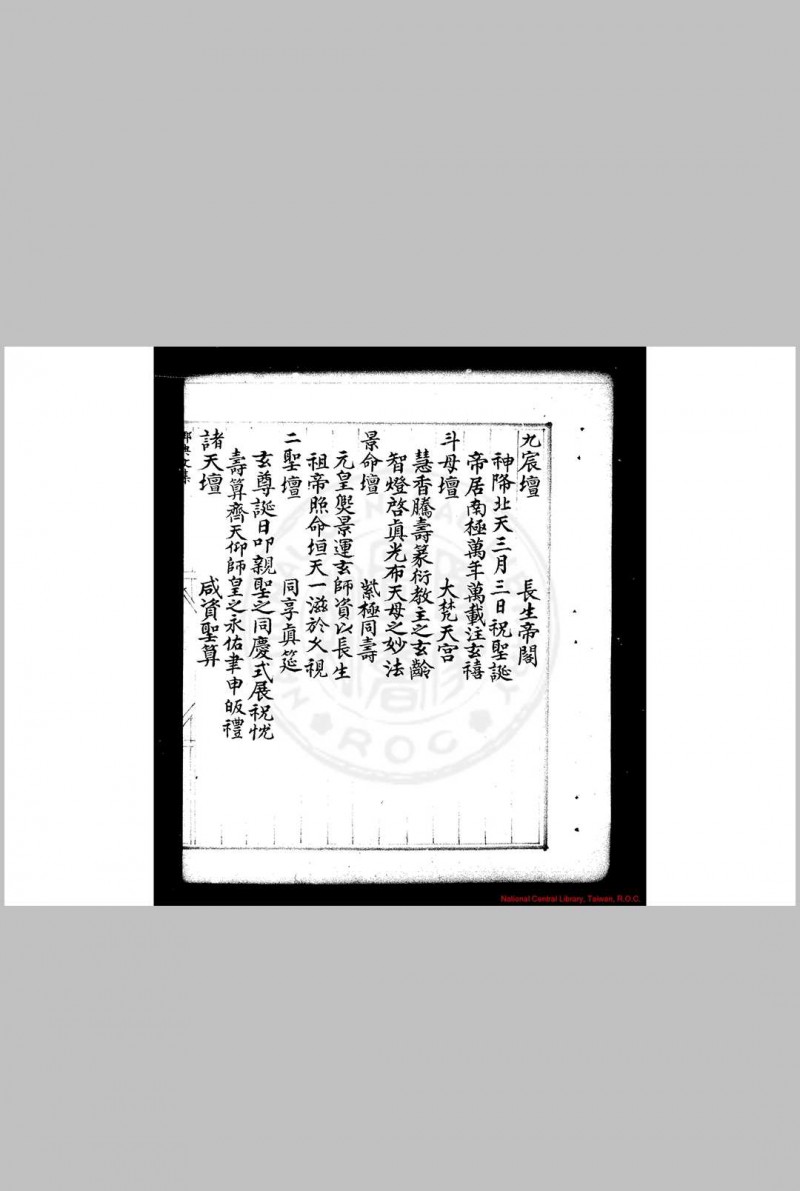 九宸壇　長生帝閣
神降北天三月三日祝聖誕
帝居南極萬年萬載注玄禧
斗母壇　大梵天宮
慧香騰壽篆衍教主之玄齡
智燈啓眞光布天母之妙法
景命壇　紫極同壽
元皇煚景運玄師資以長生
祖帝照命垣天一滋於久視
二聖壇　同享眞筵
玄尊誕日叩親聖之同慶式展祝忱
壽算齊天仰師皇之永佑聿申皈禮
諸天壇　咸資聖算
National Central Library, Taiwan, R.O.C.